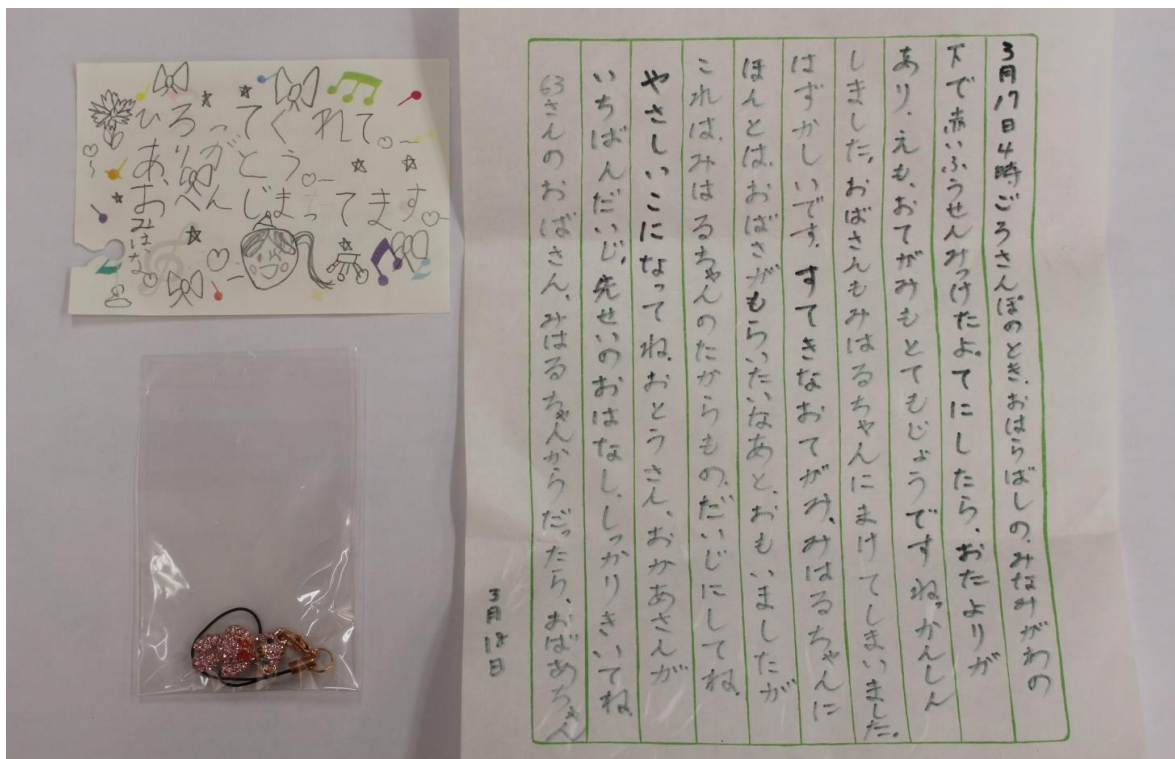 ひろってくれて。
ありがとう。
おへんじまってます
みはな
3月17日4時、ごろさんぽのとき、おはらばしの、みなみがわの
下で赤いふうせんみつけたよ。てにしたら、おたよりが
あり、えも、おてがみもとてもじょうですねっかんしん
しました、おばさんもみはるちゃんにまけてしまいました。
はずかしいです、すてきなおてがみ、みはるちゃんに
ほんとは、おばさがもらいたいなあと、おもいましたが
これは、みはるちゃんのたからもの、だいじにしてね、
やさしいこになってね、おとうさん、おかあさんが
いちばんだいじ、先せいのおはなし、しっかりきいてね
63さんのおばさん、みはるちゃんからだったら、おばあちゃん
3月18日